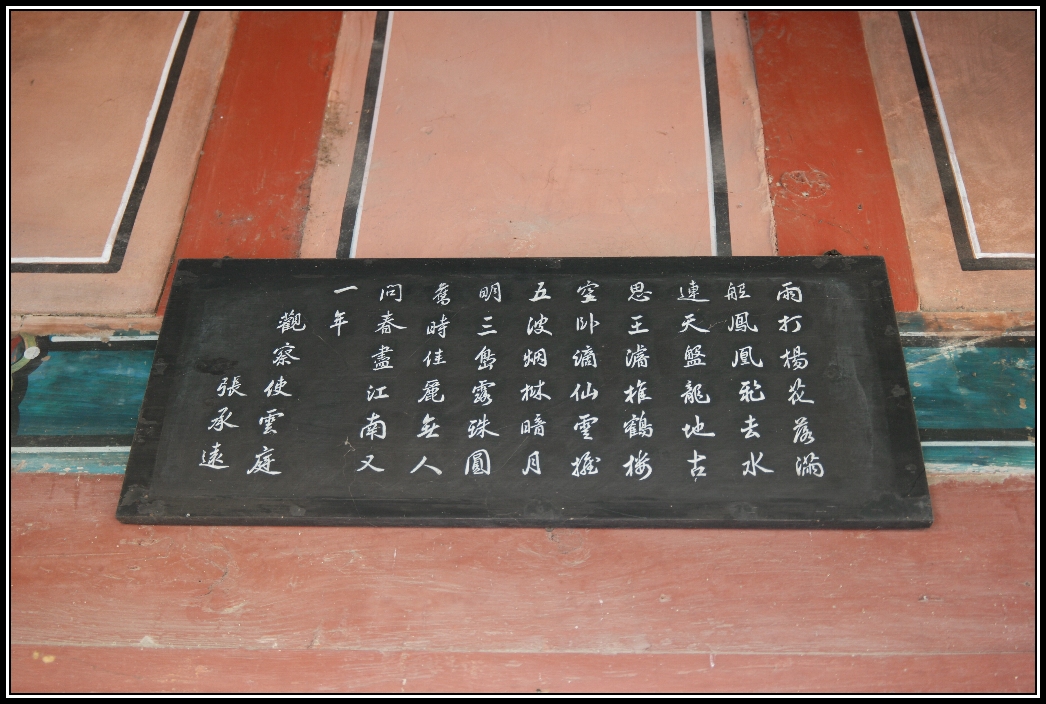 雨打楊花落滿
舡鳳凰飛去水
連天盤龍地古
思王濬椎鶴樓
空卧謫仙雲擁
五波烟樹暗月
明三島露珠圓
舊時佳麗無人
問春盡江南又
一年
觀察使雲庭
張承遠